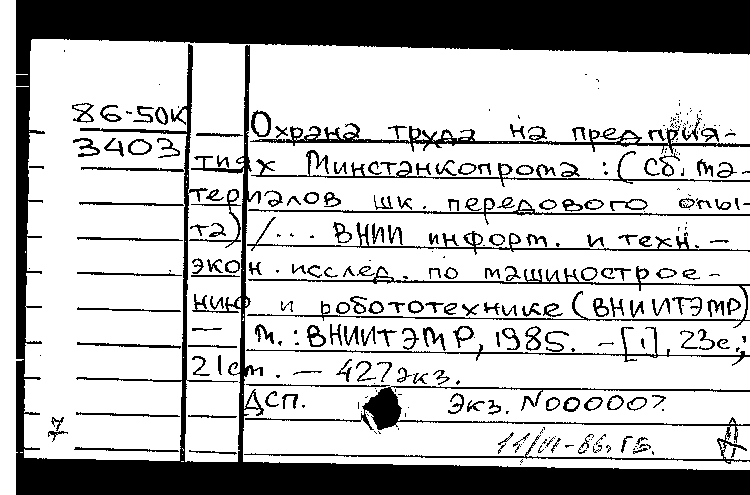 86-50К
3403
Охрана труда на предприя-
тиях Минстанкопрома : (Сб. ма-
териалов шк. передового опы-
та) /... ВНИИ информ. и техн.-
экон. исслед. по машинострое-
нию и робототехнике (ВНИИТЭМР)
— М.: ВНИИТЭМР, 1985. -[1], 23с.;
21см. — 427экз.
ДСП. Экз. N000007.
7
11/VI-86г ГБ.